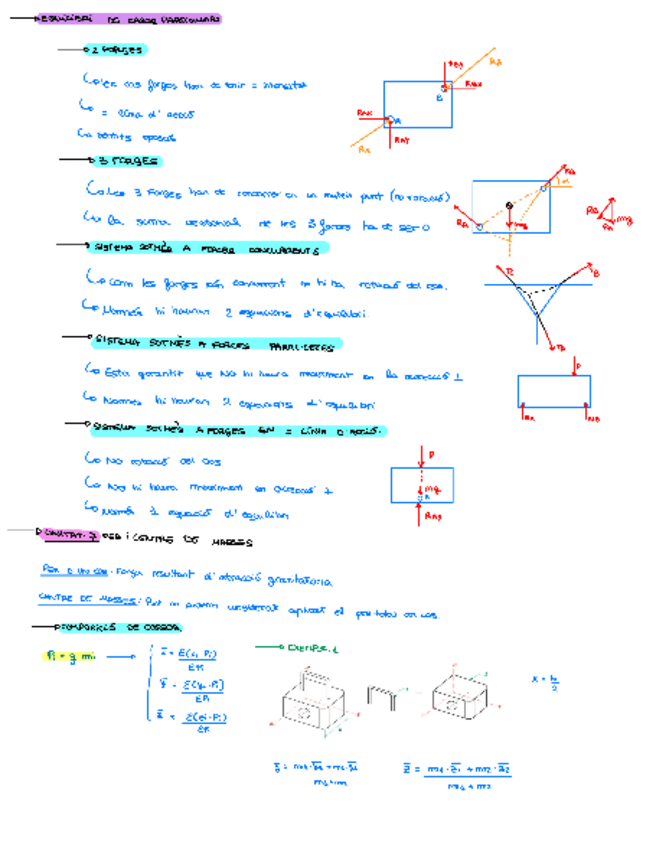 EQUILIBRI DE CASOS PARTICULARS
2 FORCES
Les dos forces han de tenir = intensitat
= línia d'acció
sentits oposats
3 FORCES
Les 3 forces han de concórrer en un mateix punt (no rotació)
La suma vectorial de les 3 forces ha de ser 0
SISTEMA SOTMÈS A FORCES CONCURRENTS
Com les forces són concurrent no hi ha rotació del cos.
Només hi hauran 2 equacions d'equilibri
SISTEMA SOTMÈS A FORCES PARAL·LELES
Està garantit que NO hi haurà moviment en la direcció ⊥
Només hi hauran 2 equacions d'equilibri
SISTEMA SOTMÈS A FORCES EN = LÍNIA D'ACCIÓ.
No rotació del cos
No hi haurà moviment en direcció ⊥
Només 1 equació d'equilibri
UNITAT 3 PES i CENTRE DE MASSES
PES D'UN COS: Força resultant d'atracció gravitatòria
CENTRE DE MASSES: Punt on podem considerar aplicat el pes total del cos.
Pi = g mi
x̄ = Σ(xi·Pi) / ΣPi
ȳ = Σ(yi·Pi) / ΣPi
z̄ = Σ(zi·Pi) / ΣPi
EXEMPLE 1
x = b/2
z̄ = m1·z̄1 + m2·z̄2 / m1 + m2
RA
RB
RAX
RAY
RBX
A
B
mg
P
NA
NB